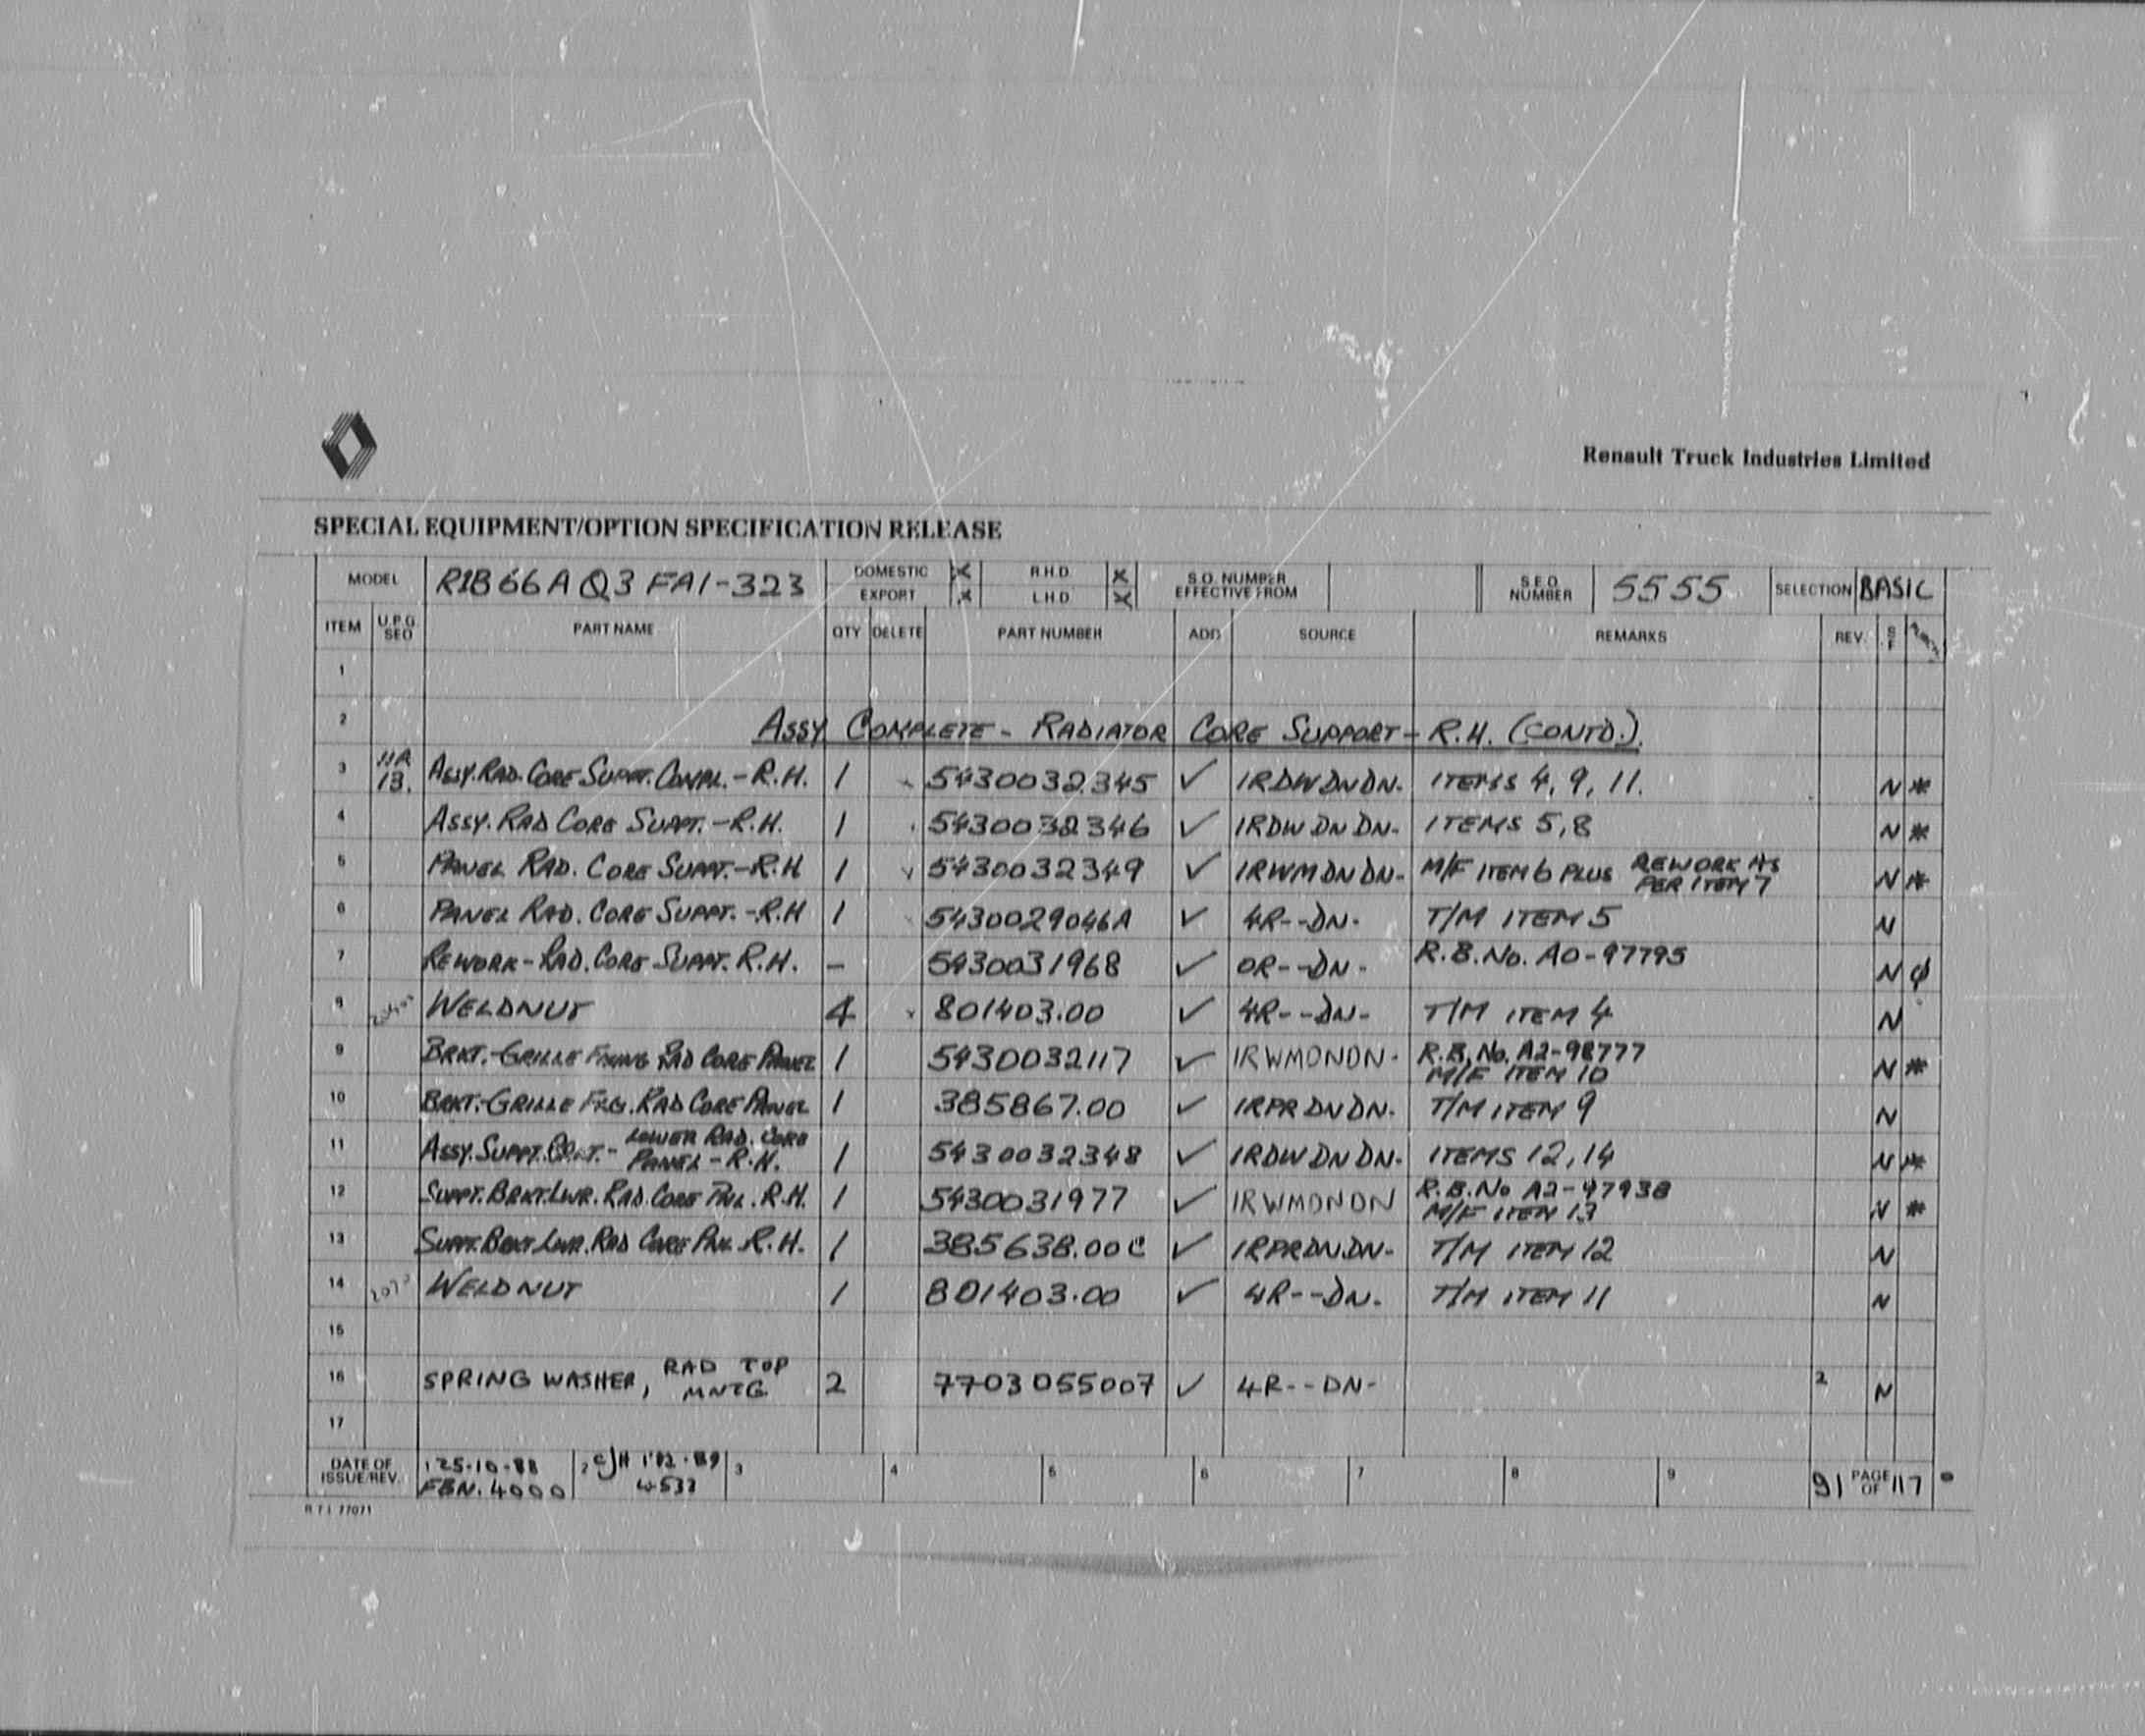 Renault Truck Industries Limited
SPECIAL EQUIPMENT/OPTION SPECIFICATION RELEASE
MODEL R1B66A Q3 FA1-323 DOMESTIC X R.H.D. X S.O. NUMBER EFFECTIVE FROM S.E.O. NUMBER 5555 SELECTION BASIC
EXPORT X L.H.D. X
ITEM U.P.G. SEQ PART NAME QTY DELETE PART NUMBER ADD SOURCE REMARKS REV. S F
1
2 ASSY COMPLETE - RADIATOR CORE SUPPORT - R.H. (CONTD.)
3 11A 13. ASSY.RAD.CORE SUPPT.COMPL.-R.H. 1 5430032345 ✓ 1RDWDNDN- ITEMS 4, 9, 11. N *
4 ASSY.RAD CORE SUPPT.-R.H. 1 5430032346 ✓ 1RDWDNDN- ITEMS 5,8 N *
5 PANEL RAD. CORE SUPPT.-R.H 1 5430032349 ✓ 1RWMDNDN- M/F ITEM 6 PLUS REWORK AS PER ITEM 7 N *
6 PANEL RAD. CORE SUPPT.-R.H 1 5430029046A ✓ 4R--DN- T/M ITEM 5 N
7 REWORK-RAD.CORE SUPPT.R.H. - 5430031968 ✓ 0R--DN- R.B.No. A0-97795 N φ
8 WELDNUT 4 801403.00 ✓ 4R--DN- T/M ITEM 4 N
9 BRKT.-GRILLE FIXING RAD CORE PANEL 1 5430032117 ✓ 1RWMDNDN- R.B.No. A2-98777 M/F ITEM 10 N *
10 BRKT.-GRILLE FXG.RAD CORE PANEL 1 385867.00 ✓ 1RPRDNDN- T/M ITEM 9 N
11 ASSY.SUPPT. - LOWER RAD. CORE PANEL-R.H. 1 5430032348 ✓ 1RDWDNDN- ITEMS 12,14 N *
12 SUPPT.BRKT.LWR.RAD.CORE PNL.R.H. 1 5430031977 ✓ 1RWMDNDN R.B.No A2-97938 M/F ITEM 13 N *
13 SUPPT.BRKT.LWR.RAD CORE PNL.R.H. 1 385638.00C ✓ 1RPRDNDN- T/M ITEM 12 N
14 WELDNUT 1 801403.00 ✓ 4R--DN- T/M ITEM 11 N
15
16 SPRING WASHER, RAD TOP MNTG 2 7703055007 ✓ 4R--DN- 2 N
17
DATE OF ISSUE/REV. 1 25-10-88 FBN.4000 2 4533 3 4 5 6 7 8 9 91 PAGE OF 117
R T I 77071